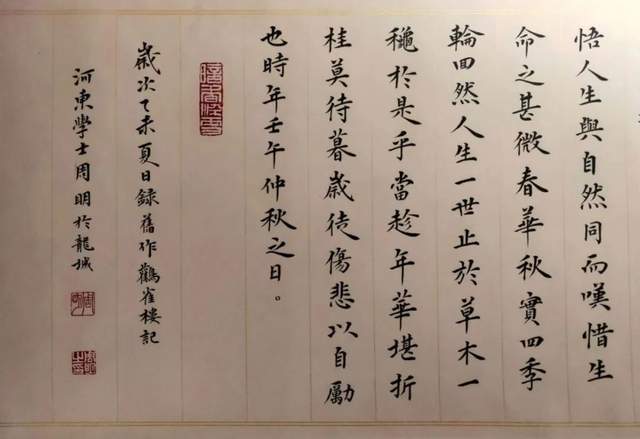 悟人生與自然同而嘆惜生
命之甚微春華秋實四季
輪回然人生一世止於草木一
穐於是乎當趁年華堪折
桂莫待暮歲徒傷悲以自勵
也時年壬午仲秋之日。
歲次乙未夏日録舊作鸛雀樓記
河東學士周明於龍城